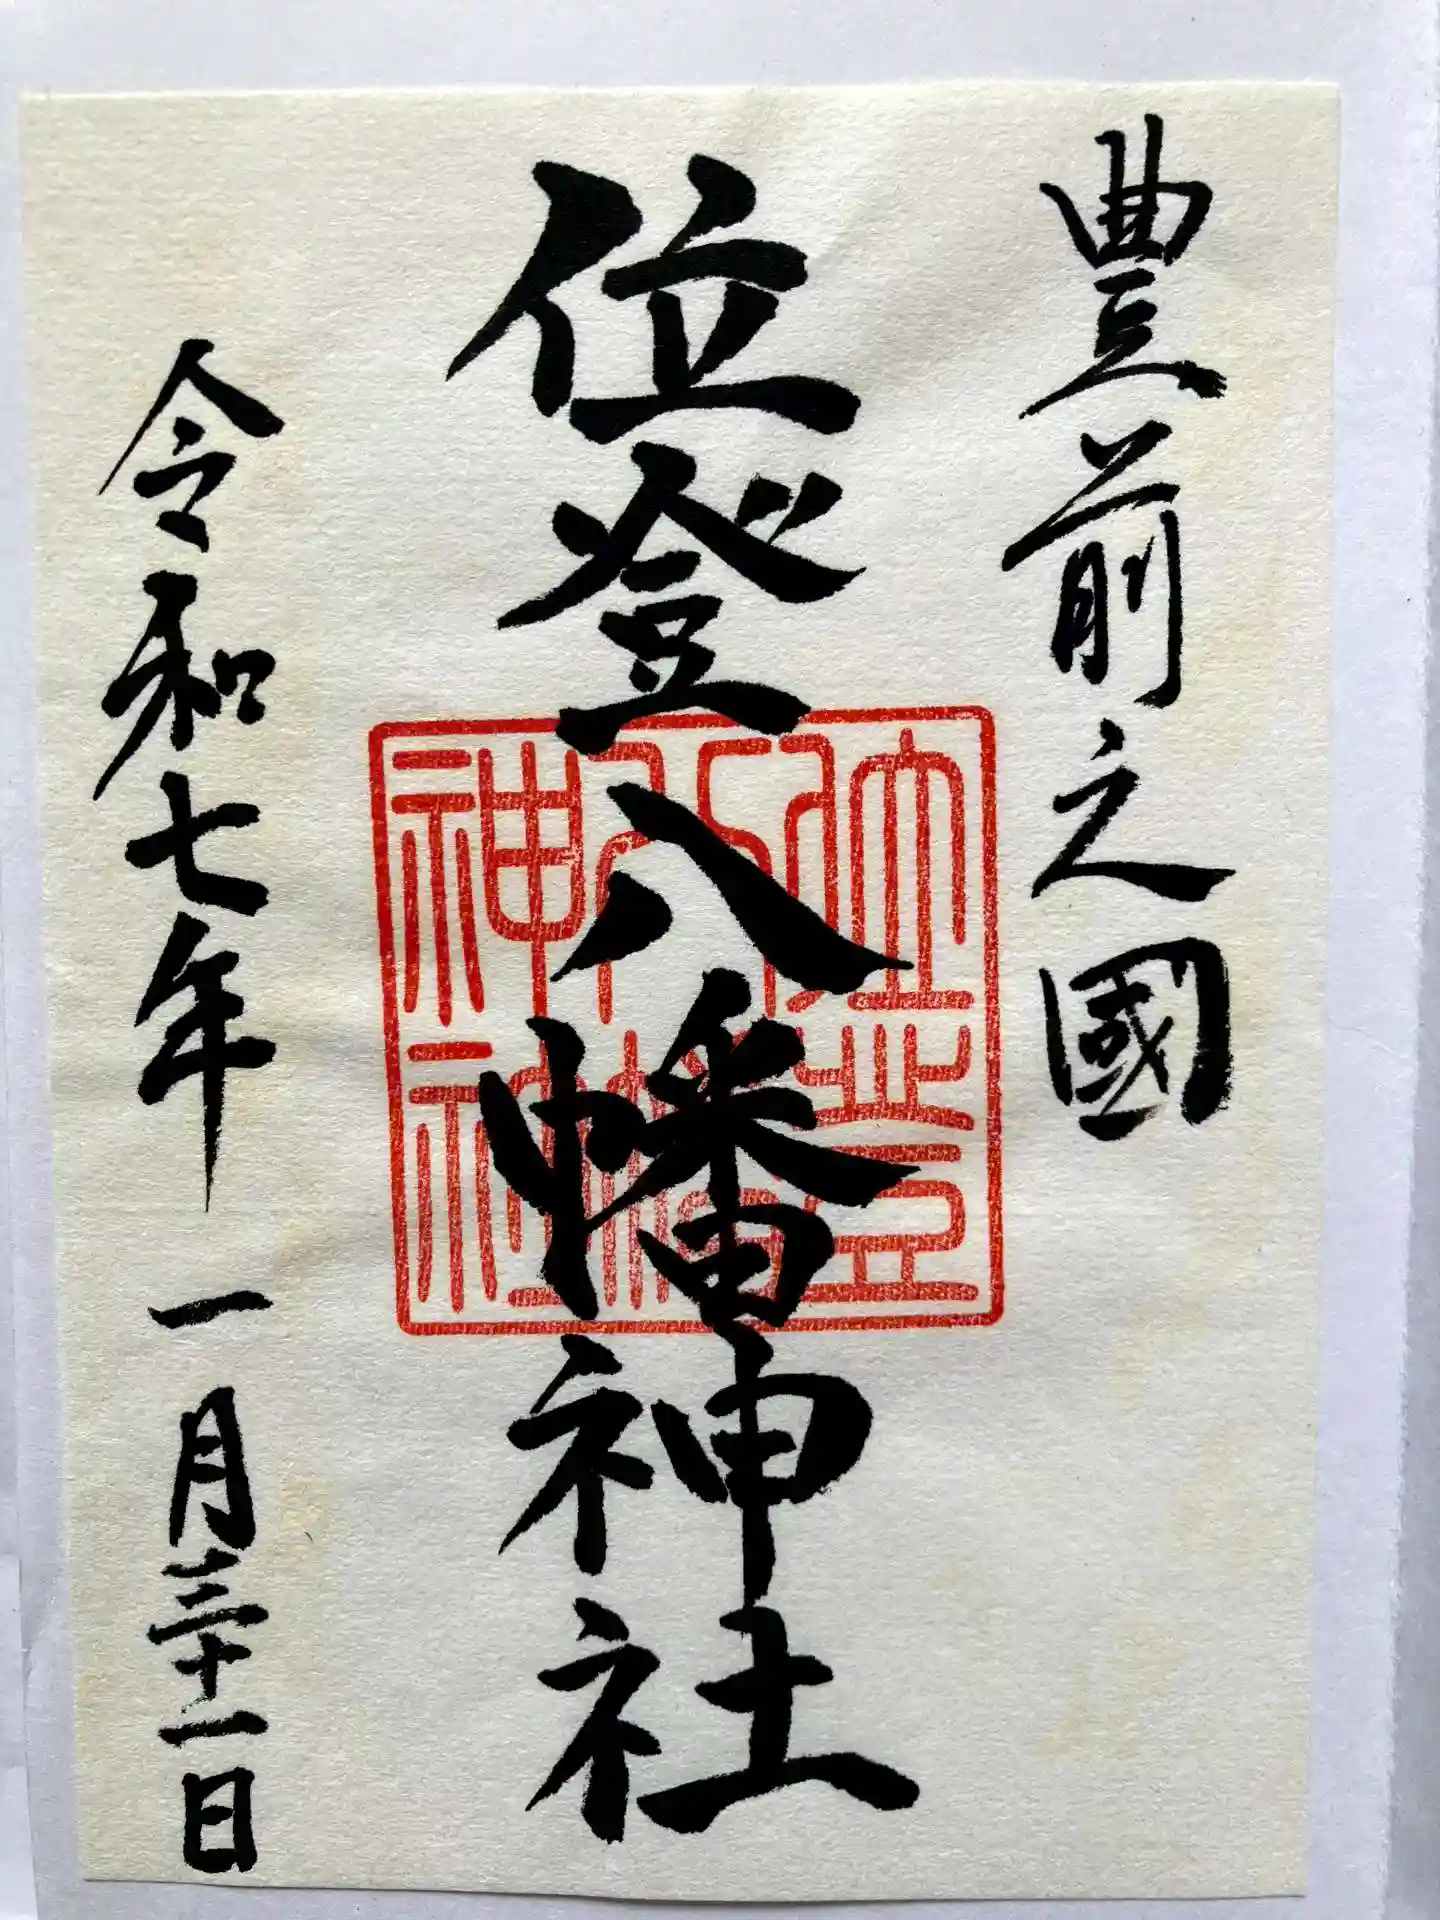 豊前之國
位登八幡神社
位登八幡神社
令和七年 一月三十一日